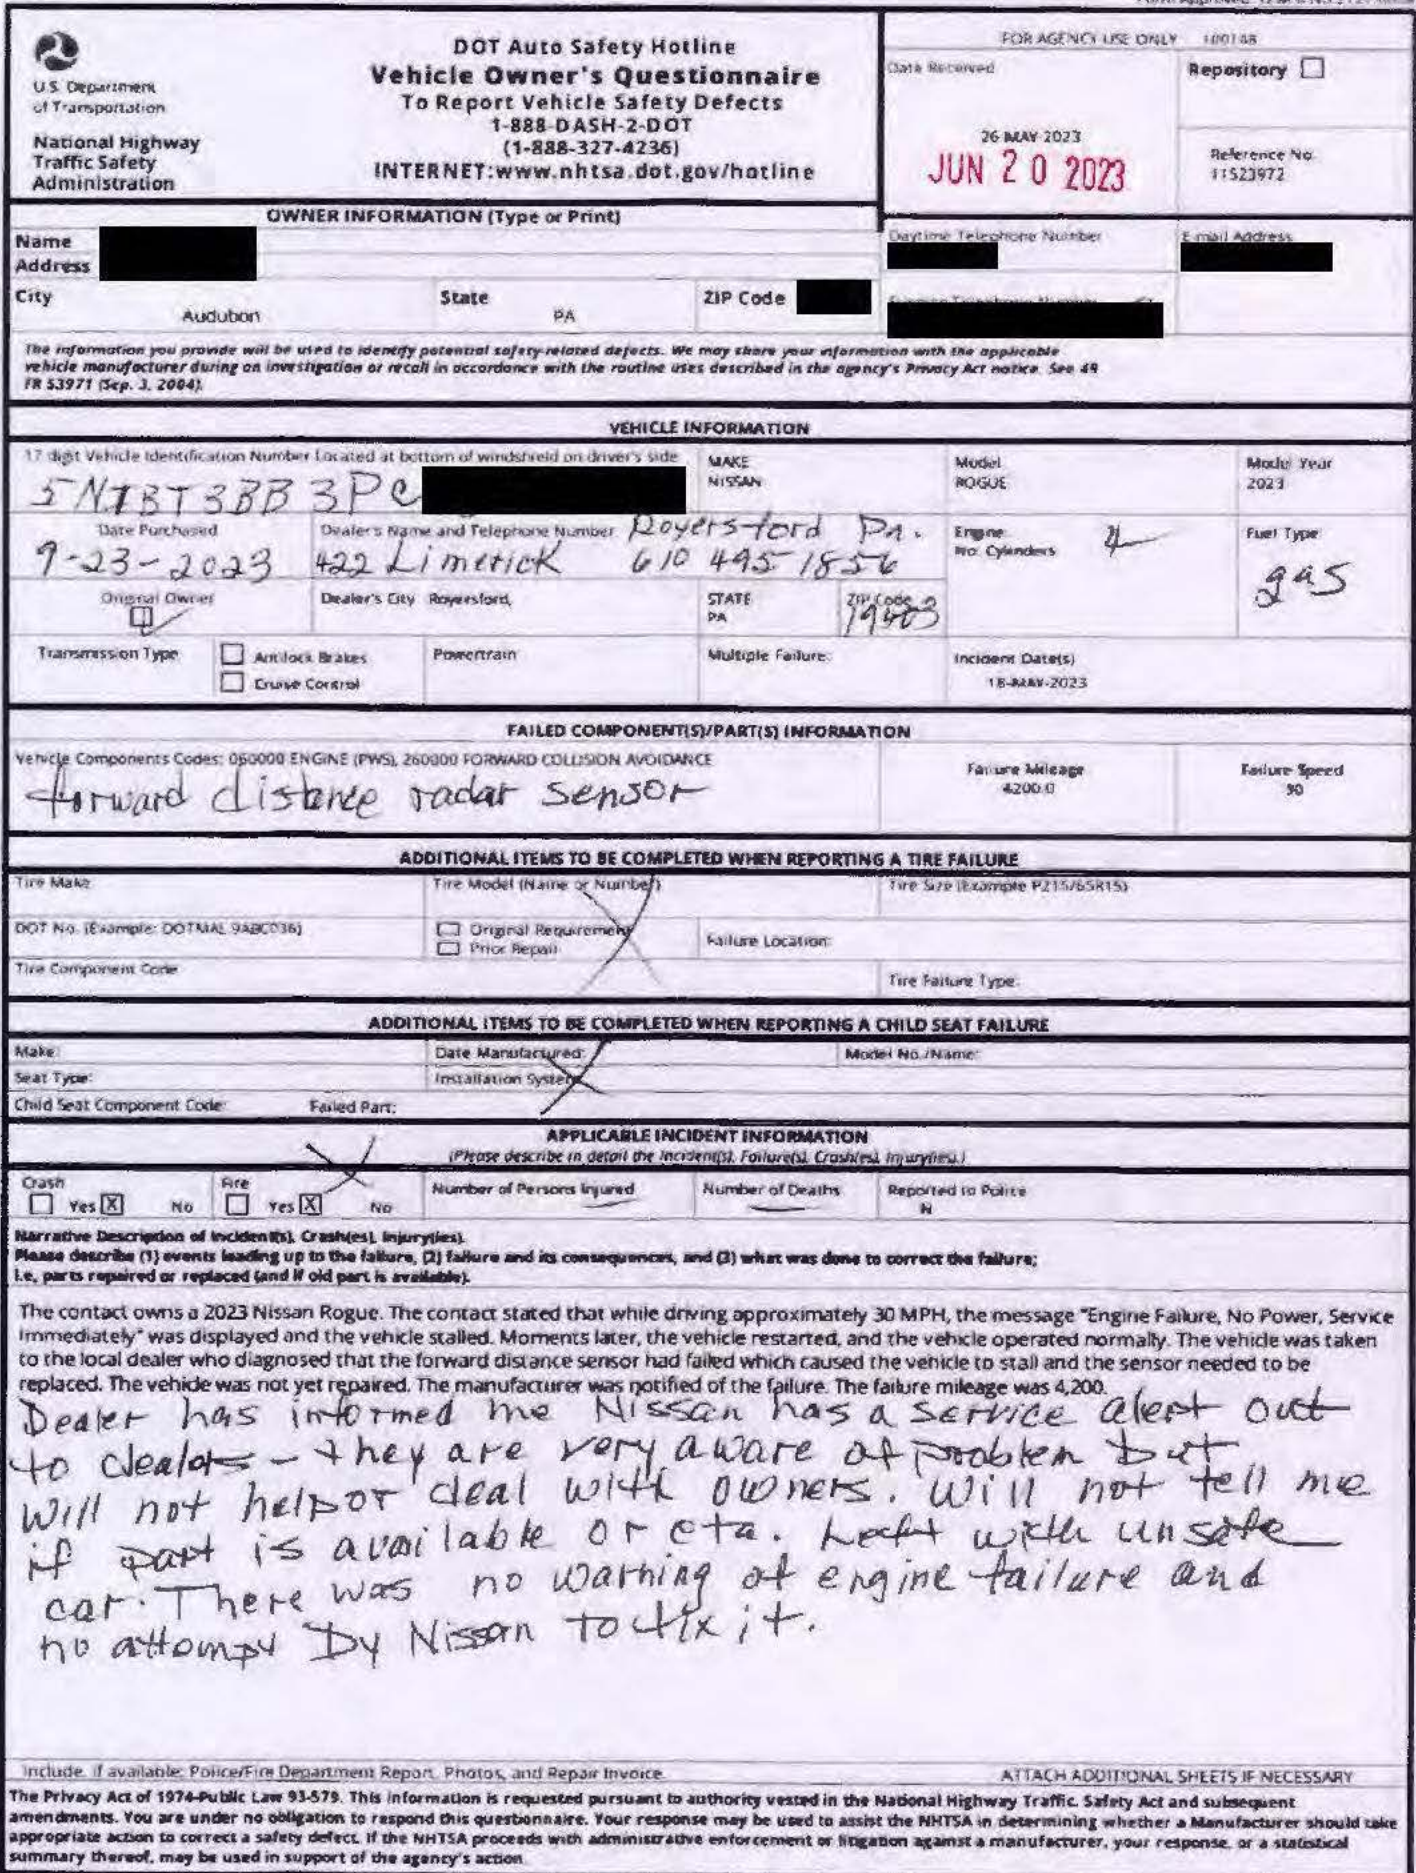 U.S. Department
of Transportation
National Highway
Traffic Safety
Administration
DOT Auto Safety Hotline
Vehicle Owner's Questionnaire
To Report Vehicle Safety Defects
1-888-DASH-2-DOT
(1-888-327-4236)
INTERNET:www.nhtsa.dot.gov/hotline
FOR AGENCY USE ONLY 100148
Date Received
26-MAY-2023
JUN 20 2023
Repository
Reference No.
11523972
OWNER INFORMATION (Type or Print)
Name
Address
Daytime Telephone Number
E-mail Address
City Audubon State PA ZIP Code
The information you provide will be used to identify potential safety-related defects. We may share your information with the applicable
vehicle manufacturer during an investigation or recall in accordance with the routine uses described in the agency's Privacy Act notice. See 49
FR 53971 (Sep. 3, 2004).
VEHICLE INFORMATION
17 digit Vehicle Identification Number Located at bottom of windshield on driver's side
5N1BT3BB3PC
MAKE
NISSAN
Model
ROGUE
Model Year
2023
Date Purchased
9-23-2023
Dealer's Name and Telephone Number Royersford Pa.
422 Limerick 610 495 1856
Engine
No. Cylinders 4
Fuel Type
gas
Original Owner
Dealer's City Royersford,
STATE
PA
ZIP Code
Transmission Type
Antilock Brakes
Cruise Control
Powertrain
Multiple Failure:
Incident Date(s)
18-MAY-2023
FAILED COMPONENT(S)/PART(S) INFORMATION
Vehicle Components Codes: 060000 ENGINE (PWS), 260000 FORWARD COLLISION AVOIDANCE
forward distance radar sensor
Failure Mileage
4200.0
Failure Speed
30
ADDITIONAL ITEMS TO BE COMPLETED WHEN REPORTING A TIRE FAILURE
Tire Make
Tire Model (Name or Number)
Tire Size (Example P215/65R15)
DOT No. (Example: DOTMAL 9ABC036)
Original Requirement
Prior Repair
Failure Location:
Tire Component Code
Tire Failure Type:
ADDITIONAL ITEMS TO BE COMPLETED WHEN REPORTING A CHILD SEAT FAILURE
Make: Date Manufactured: Model No./Name:
Seat Type: Installation System
Child Seat Component Code: Failed Part:
APPLICABLE INCIDENT INFORMATION
(Please describe in detail the Incident(s), Failure(s), Crash(es), Injury(ies).)
Crash
Yes X No
Fire
Yes X No
Number of Persons Injured
Number of Deaths
Reported to Police
N
Narrative Description of Incident(s), Crash(es), Injury(ies).
Please describe (1) events leading up to the failure, (2) failure and its consequences, and (3) what was done to correct the failure;
i.e, parts repaired or replaced (and if old part is available).
The contact owns a 2023 Nissan Rogue. The contact stated that while driving approximately 30 MPH, the message "Engine Failure, No Power, Service
Immediately" was displayed and the vehicle stalled. Moments later, the vehicle restarted, and the vehicle operated normally. The vehicle was taken
to the local dealer who diagnosed that the forward distance sensor had failed which caused the vehicle to stall and the sensor needed to be
replaced. The vehicle was not yet repaired. The manufacturer was notified of the failure. The failure mileage was 4,200.
Dealer has informed me Nissan has a service alert out
to dealers - they are very aware of problem but
will not help or deal with owners. Will not tell me
if part is available or eta. Left with unsafe
car. There was no warning of engine failure and
no attempt by Nissan to fix it.
Include, if available: Police/Fire Department Report, Photos, and Repair Invoice
ATTACH ADDITIONAL SHEETS IF NECESSARY
The Privacy Act of 1974-Public Law 93-579. This information is requested pursuant to authority vested in the National Highway Traffic Safety Act and subsequent
amendments. You are under no obligation to respond this questionnaire. Your response may be used to assist the NHTSA in determining whether a Manufacturer should take
appropriate action to correct a safety defect. If the NHTSA proceeds with administrative enforcement or litigation against a manufacturer, your response, or a statistical
summary thereof, may be used in support of the agency's action